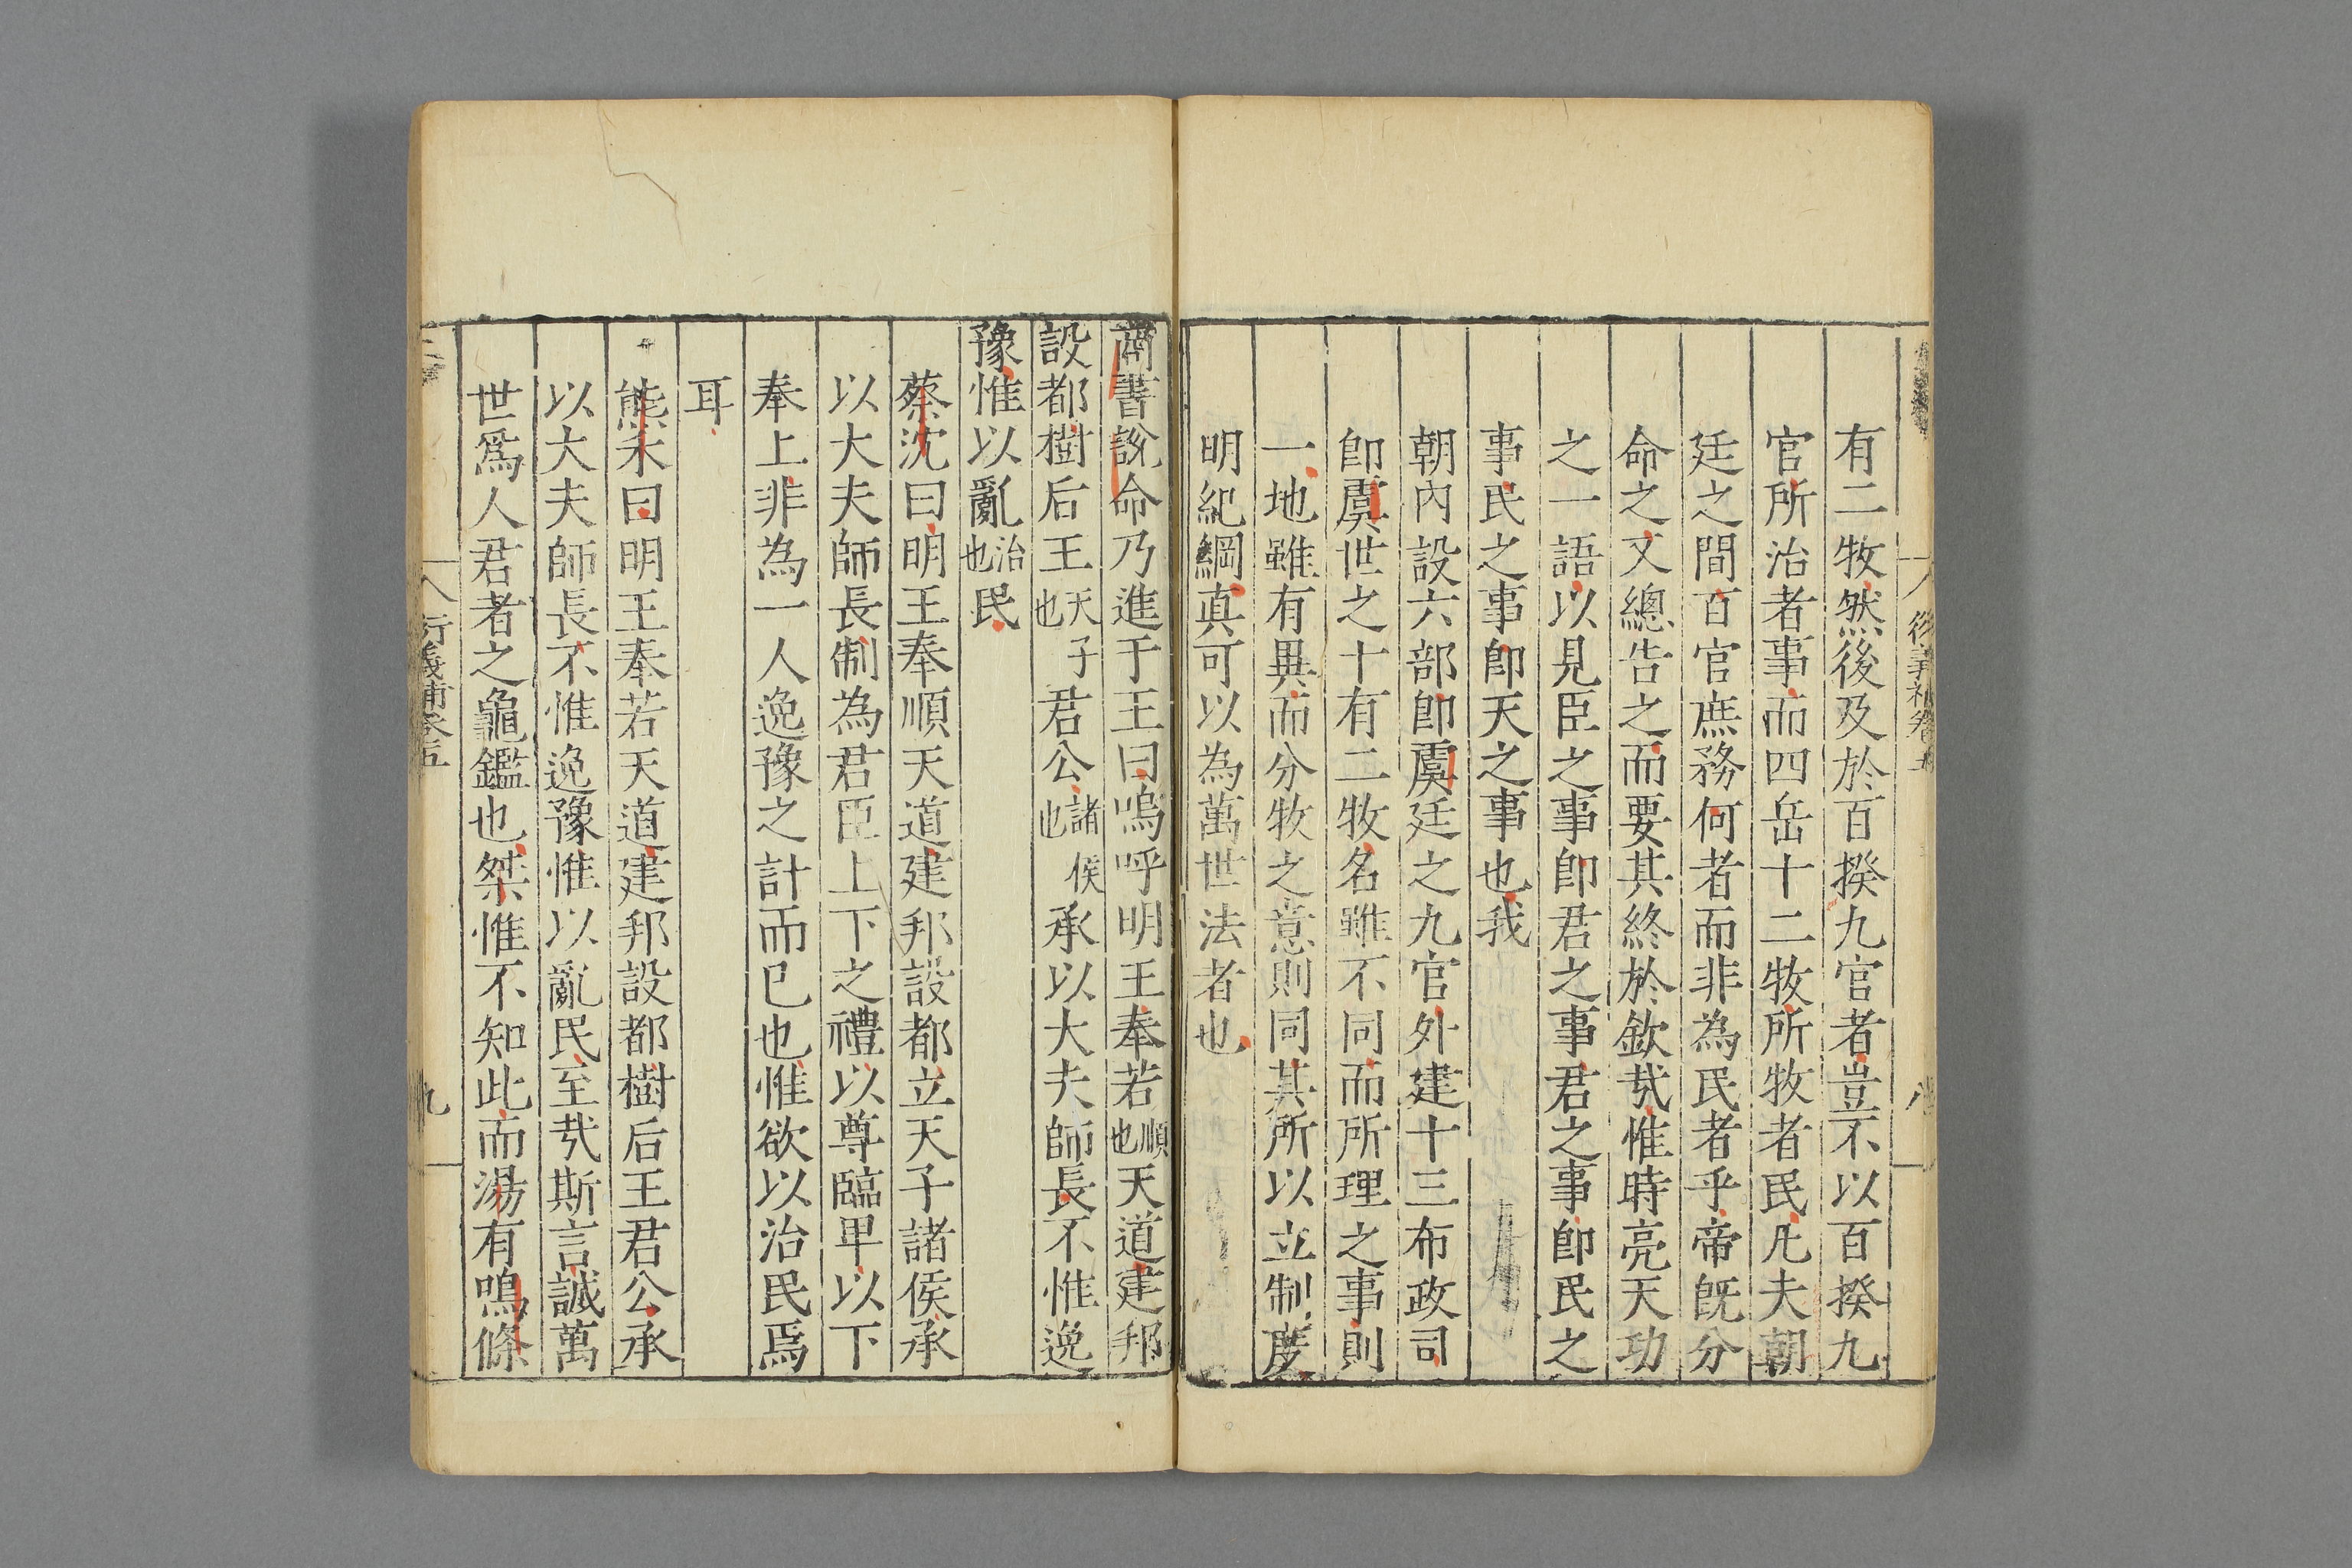 衍義補卷五
八
有二牧然後及於百揆九官者豈不以百揆九
官所治者事而四岳十二牧所牧者民凡夫朝
廷之間百官庶務何者而非為民者乎帝旣分
命之又總告之而要其終於欽㢤惟時亮天功
之一語以見臣之事卽君之事君之事卽民之
事民之事卽天之事也我
朝內設六部卽虞廷之九官外建十三布政司
卽虞世之十有二牧名雖不同而所理之事則
一地雖有異而分牧之意則同其所以立制度
明紀綱真可以為萬世法者也
商書說命乃進于王曰嗚呼明王奉若順也天道建邦
設都樹后王天子也君公諸侯也承以大夫師長不惟逸
豫惟以亂治也民
蔡沈曰明王奉順天道建邦設都立天子諸侯承
以大夫師長制為君臣上下之禮以尊臨卑以下
奉上非為一人逸豫之計而已也惟欲以治民焉
耳
熊禾曰明王奉若天道建邦設都樹后王君公承
以大夫師長不惟逸豫惟以亂民至㢤斯言誠萬
世爲人君者之龜鑑也桀惟不知此而湯有鳴條
衍義補卷五
九